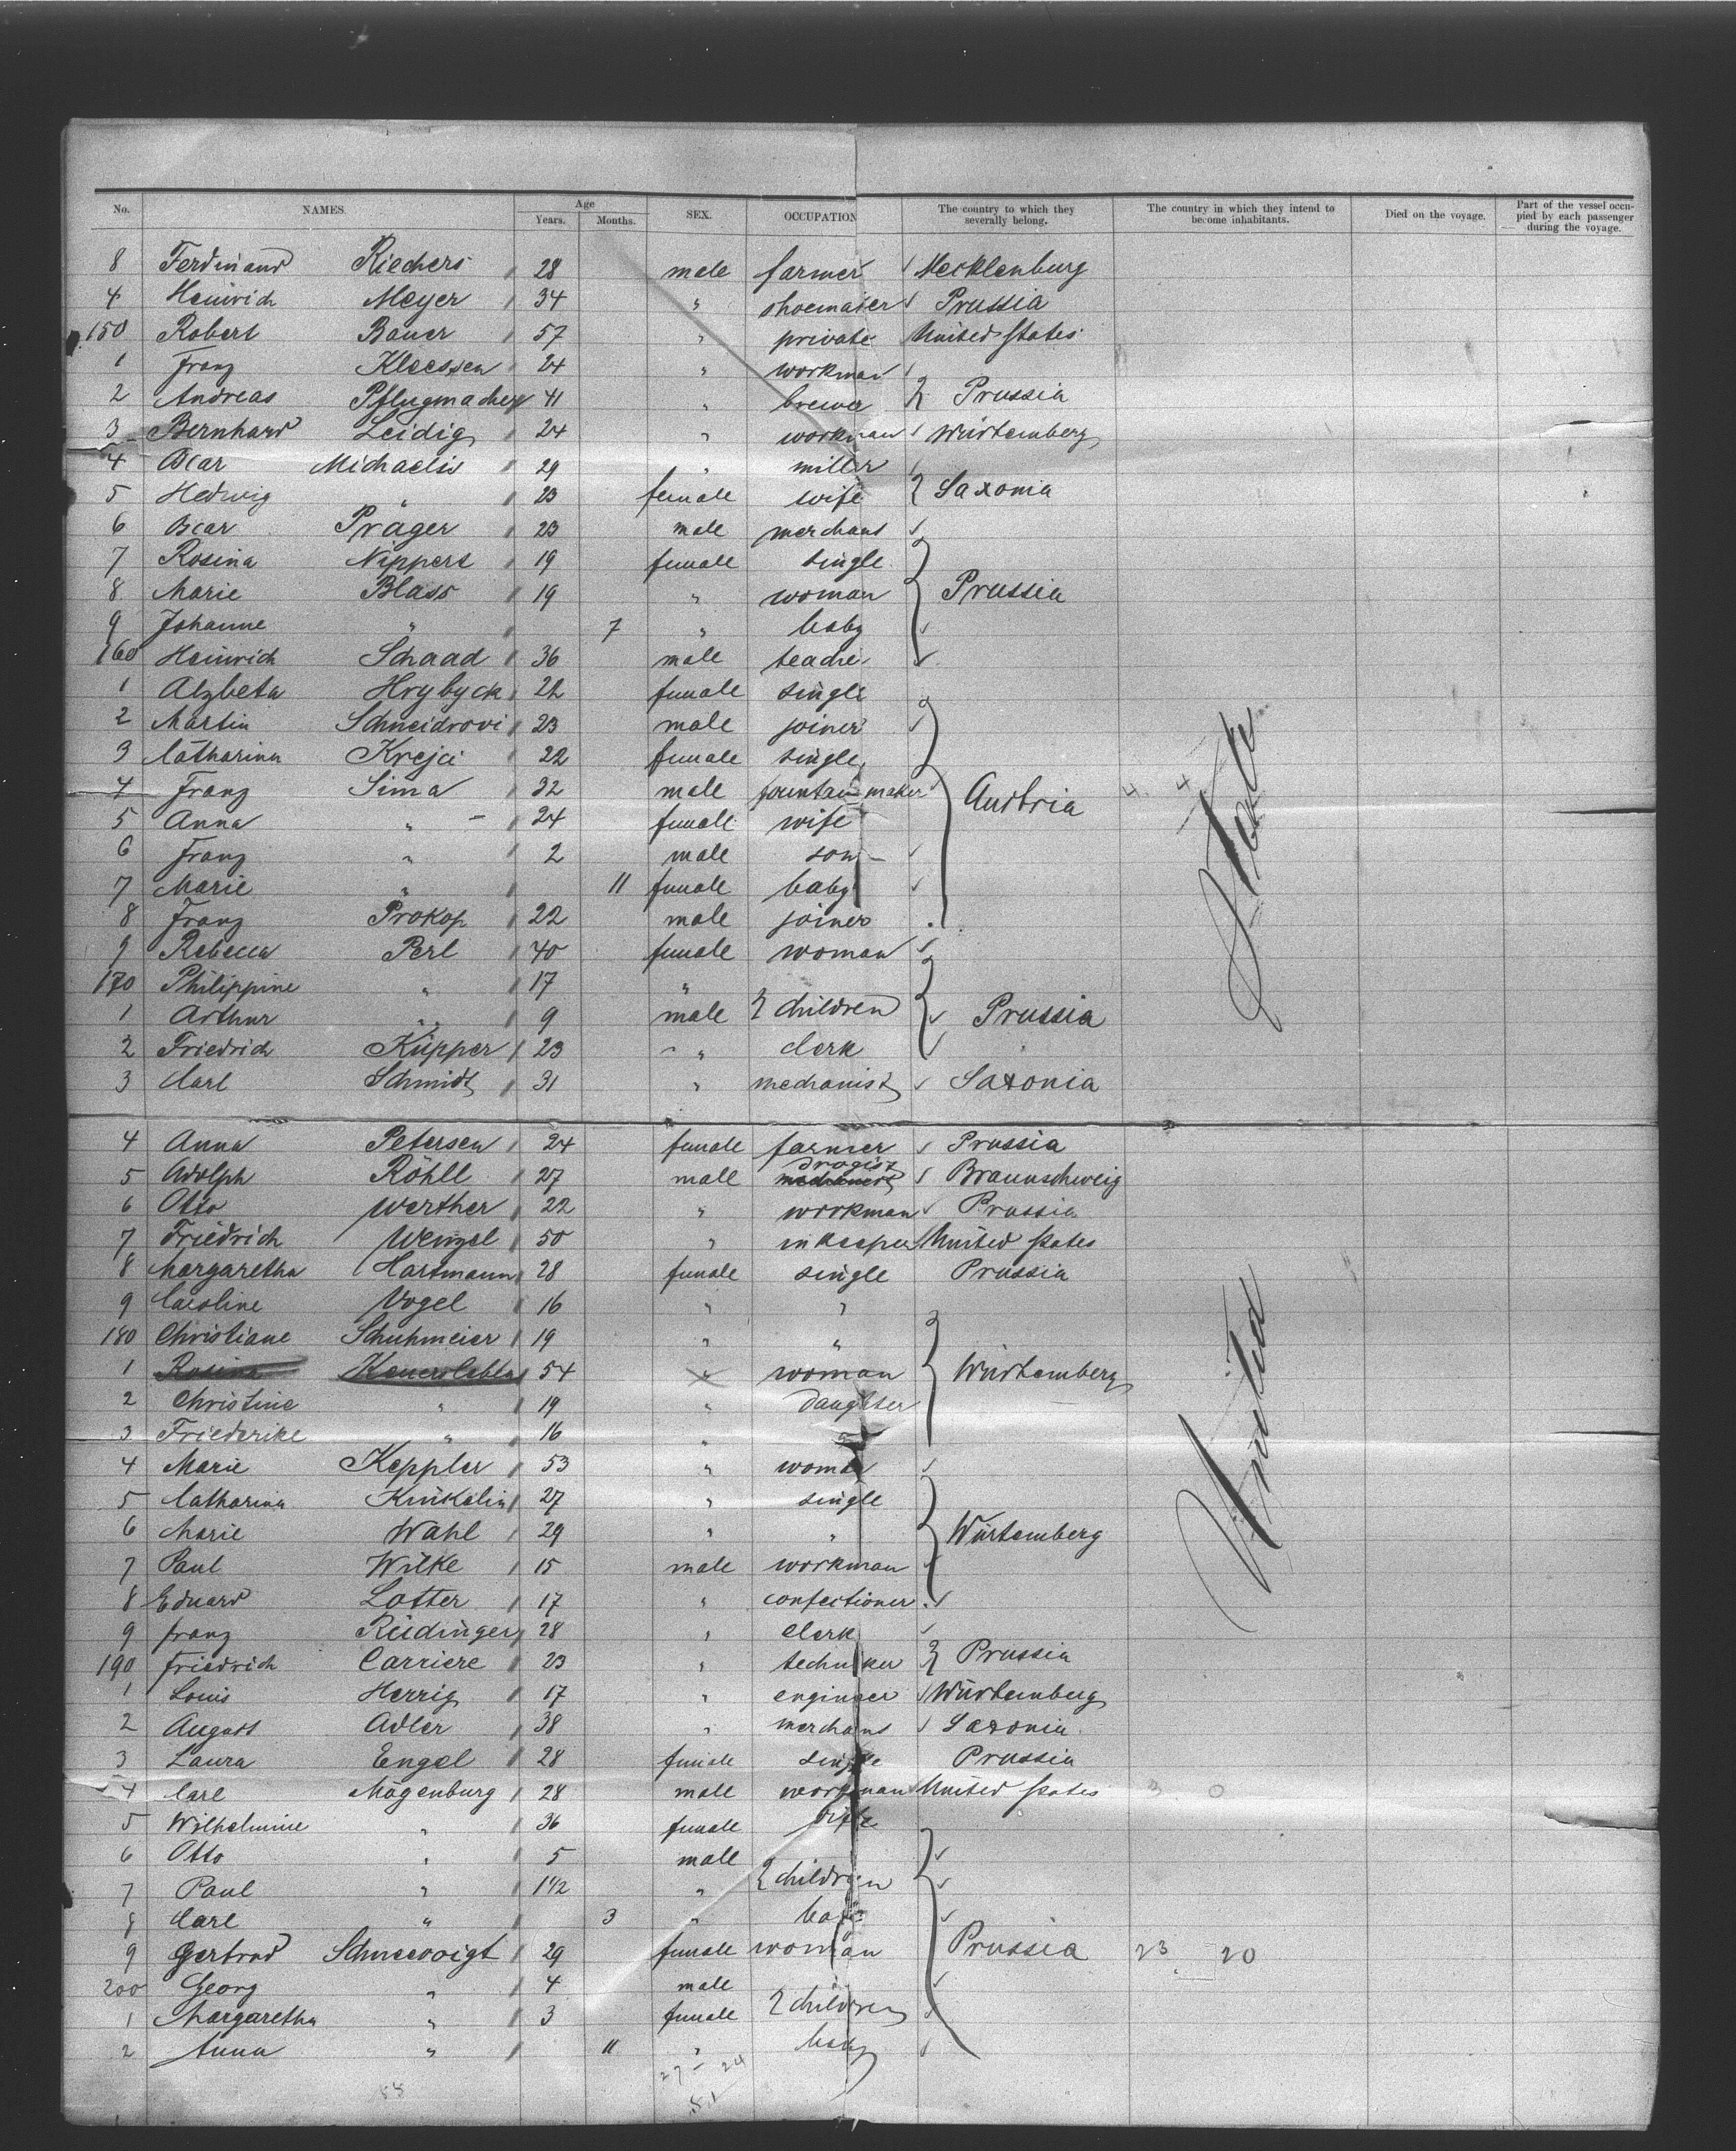 No. NAMES. Age Years. Months. SEX. OCCUPATION The country to which they severally belong. The country in which they intend to become inhabitants. Died on the voyage. Part of the vessel occupied by each passenger during the voyage.
8 Ferdinand Riechers 28 male farmer Mecklenburg
4 Heinrich Meyer 34 " shoemaker Prussia
150 Robert Bauer 57 " private United States
1 Franz Kleessen 24 " workman
2 Andreas Pflugmacher 41 " brewer } Prussia
3 Bernhard Leidig 24 " workman Würtemberg
4 Oscar Michaelis 29 " miller
5 Hedwig " 23 female wife } Saxonia
6 Oscar Präger 23 male merchant
7 Rosina Nippert 19 female single
8 Marie Blass 19 " woman } Prussia
9 Johanne " 7 " baby
160 Heinrich Schaad 36 male teacher
1 Alzbeta Hrybyck 22 female single
2 Martin Schneidrovi 23 male joiner
3 Catharina Krejci 22 female single
4 Franz Sima 32 male fountain maker } Austria
5 Anna " 24 female wife
6 Franz " 2 male son
7 Marie " 11 female baby
8 Franz Prokop 22 male joiner
9 Rebecca Perl 40 female woman
170 Philippine " 17 "
1 Arthur " 9 male } children } Prussia
2 Friedrich Küpper 23 " clerk
3 Carl Schmidt 31 " mechanist Saxonia
4 Anna Petersen 24 female farmer Prussia
5 Adolph Röhll 27 male drogist Braunschweig
6 Otto Werther 22 " workman Prussia
7 Friedrich Wenzel 50 " inkeeper United States
8 Margaretha Hartmann 28 female single Prussia
9 Caroline Vogel 16 " "
180 Christiane Schuhmeier 19 " "
1 Rosina 54 " woman } Würtemberg
2 Christine " 19 " daughter
3 Friederike " 16 " "
4 Marie Keppler 53 " woman
5 Catharina Künkelin 27 " single
6 Marie Wahl 29 " " } Würtemberg
7 Paul Wilke 15 male workman
8 Eduard Lotter 17 " confectioner
9 Franz Reidinger 28 " clerk
190 Friedrich Carriere 23 " techniker } Prussia
1 Louis Herrig 17 " engineer Würtemberg
2 August Adler 38 " merchant Saxonia
3 Laura Engel 28 female single Prussia
4 Carl Mägenburg 28 male workman United States 3 0
5 Wilhelmine " 36 female wife
6 Otto " 5 male
7 Paul " 1 1/2 " } children
8 Carl " 3 " baby
9 Gertrud Schneevoigt 29 female woman } Prussia 23 20
200 Georg " 4 male
1 Margaretha " 3 female } children
2 Anna " 11 " baby
27 - 24
58
51
United State